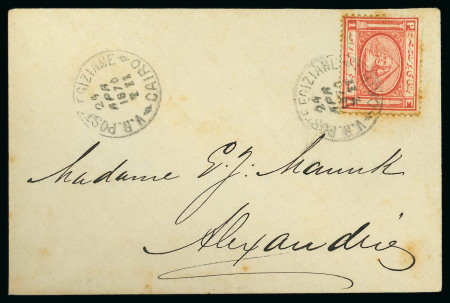 V.R. POSTE EGIZIANE CAIRO
24
APR
1870
V.R. POSTE EGIZIANE
24
APR
P E
1 1
Madame E. J.
Alexandrie